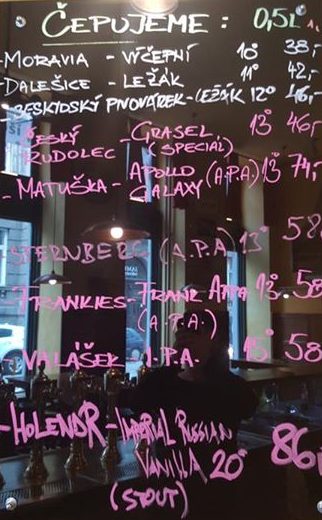 ČEPUJEME: 0,5L
-MORAVIA - VÝČEPNÍ 10° 38,-
-DALEŠICE - LEŽÁK 11° 42,-
-BESKIDSKÝ PIVOVÁREK - LEŽÁK 12° 46,-
ČESKÝ - GRASEL 13° 46,-
RUDOLEC (SPECIAL)
-MATUŠKA - APOLLO (A.P.A) 13° 74,-
GALAXY
STERNBERG (A.P.A) 13° 58
-FRANKIES - FRANK APPA 13° 58
(A.P.A.)
-VALÁŠEK - I.P.A. 15° 58
-HOLENDR - IMPERIAL RUSSIAN
VANILLA 20° 86,-
(STOUT)